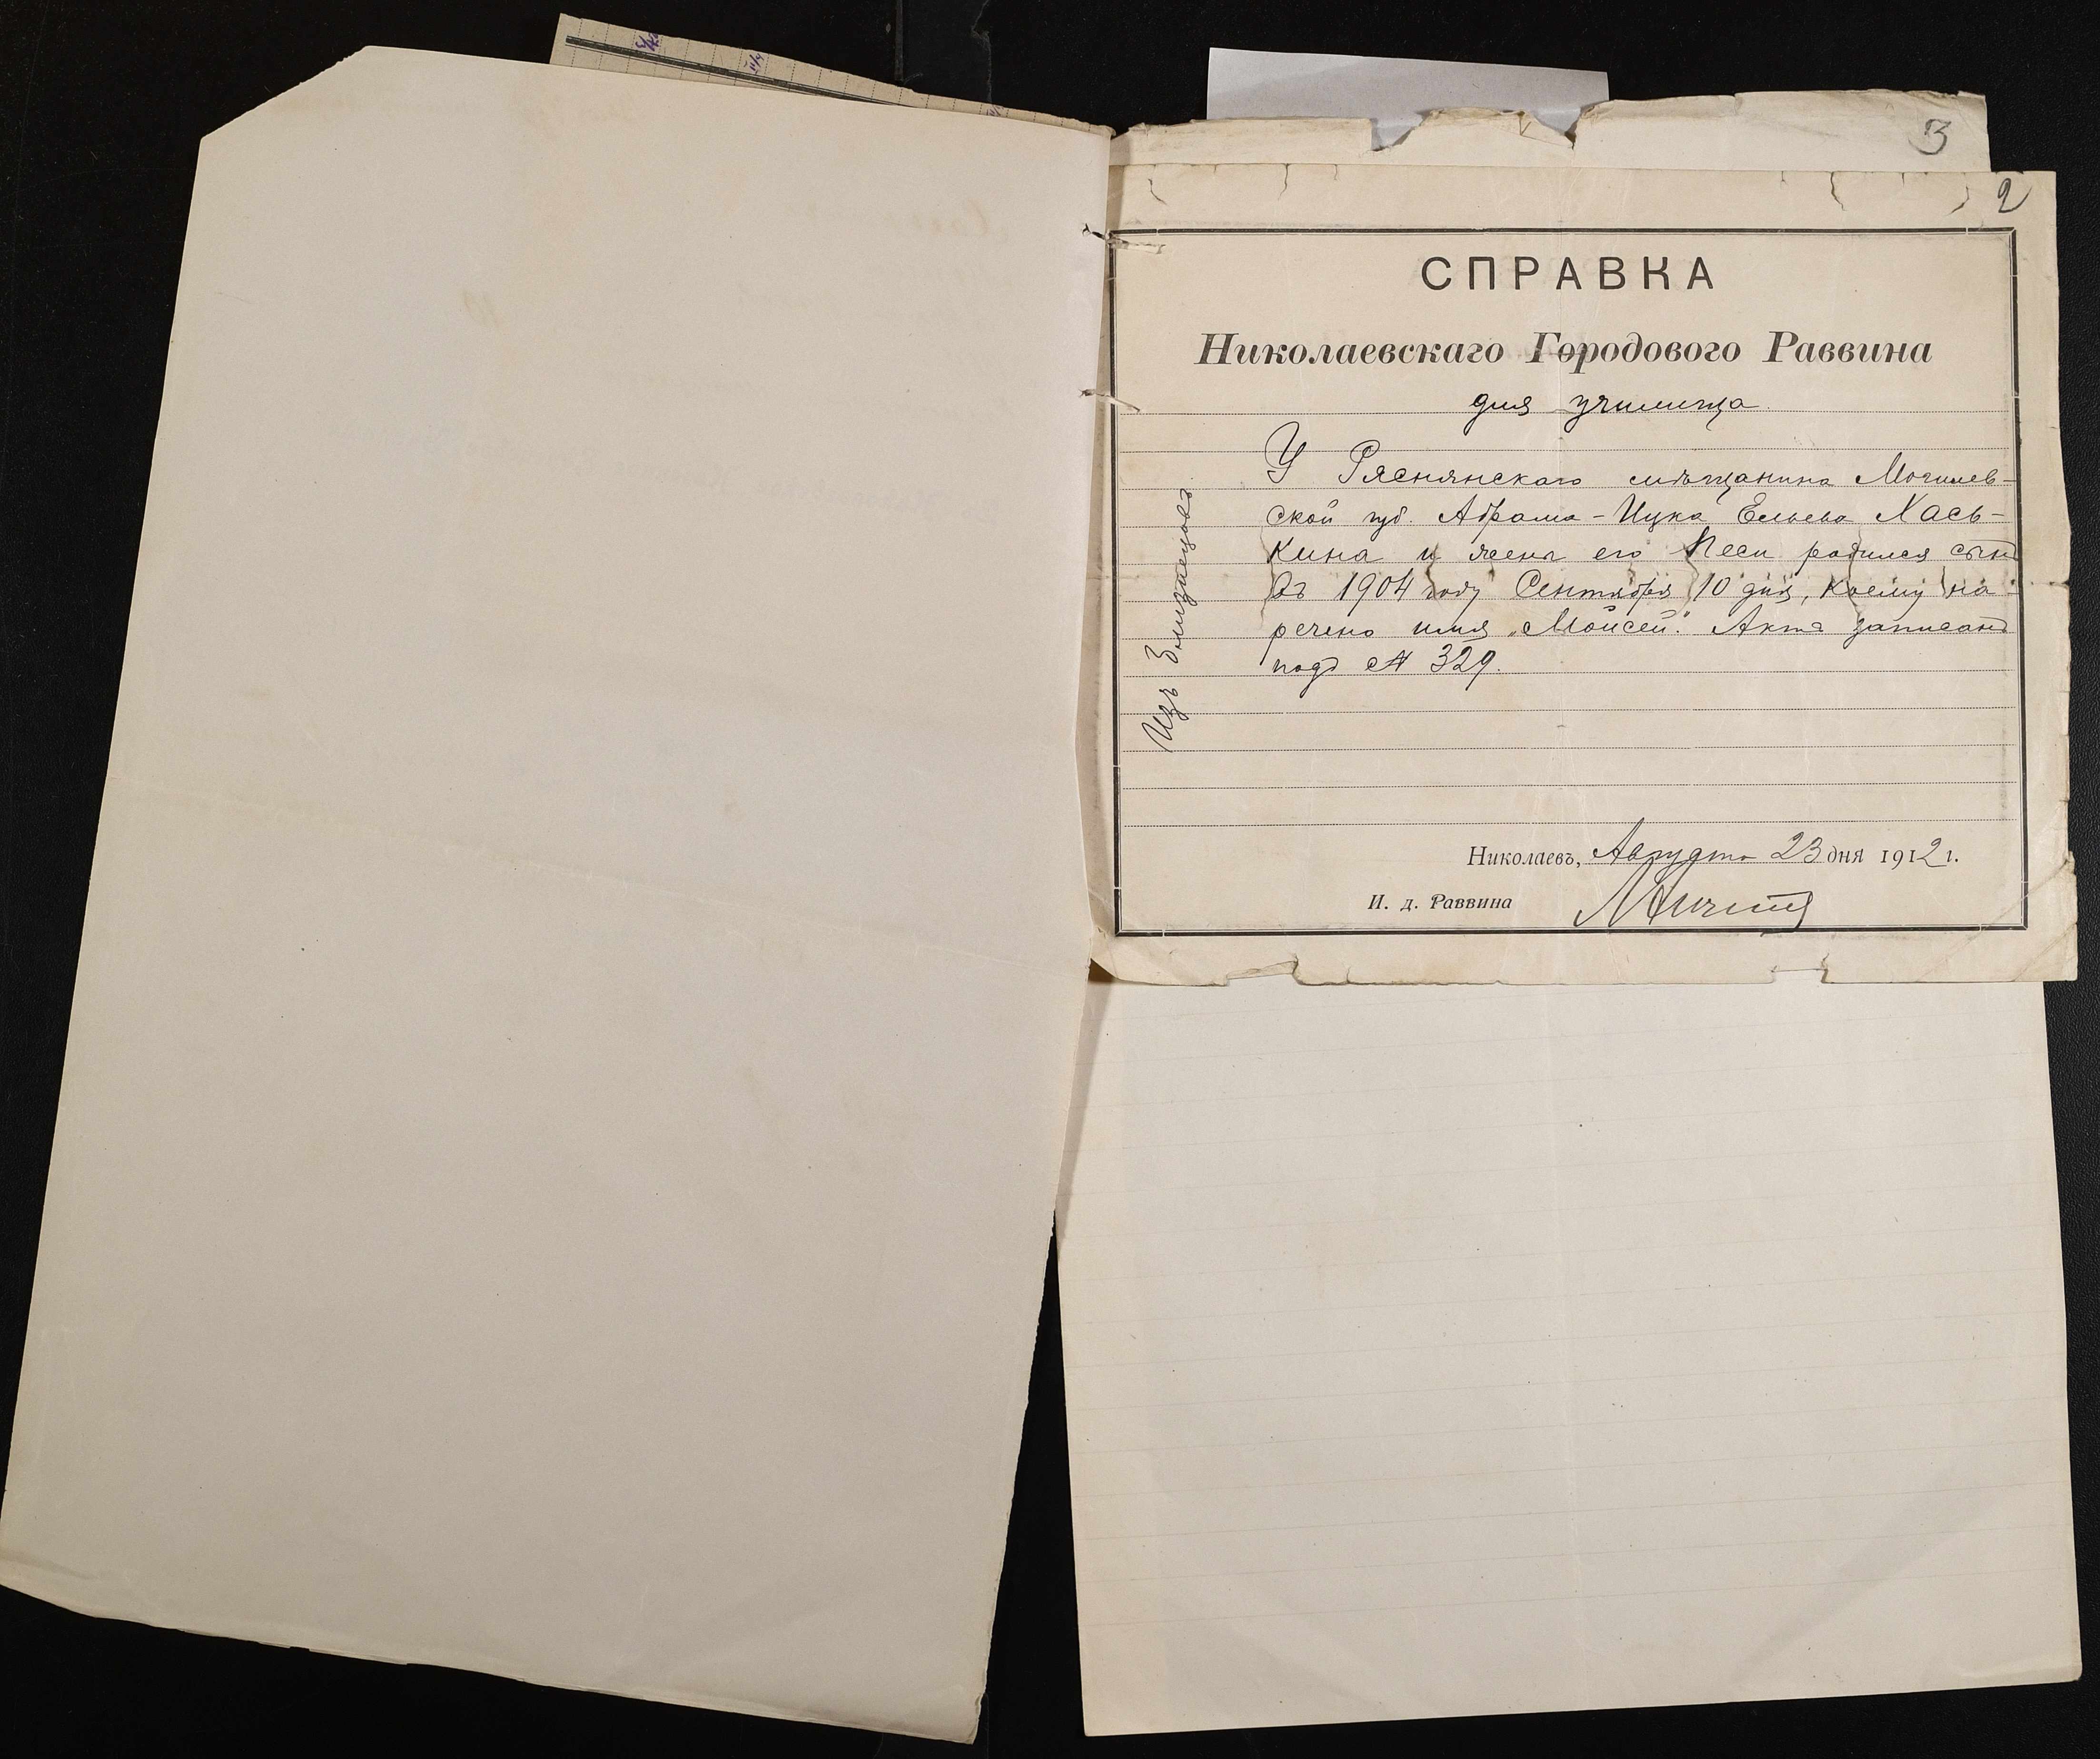 3
2
СПРАВКА
Николаевскаго Городового Раввина
для училища.
У Ряснянскаго мѣщанина Могилев-
ской губ. Абрама-Ицка Ельева Хась-
кина и жены его Песи родился сынъ
въ 1904 году Сентября 10 дня, коему на-
речено имя „Мойсей". Актъ записанъ
подъ № 329.
Изъ
Николаевъ, Августа 23 дня 1912 г.
И. д. Раввина